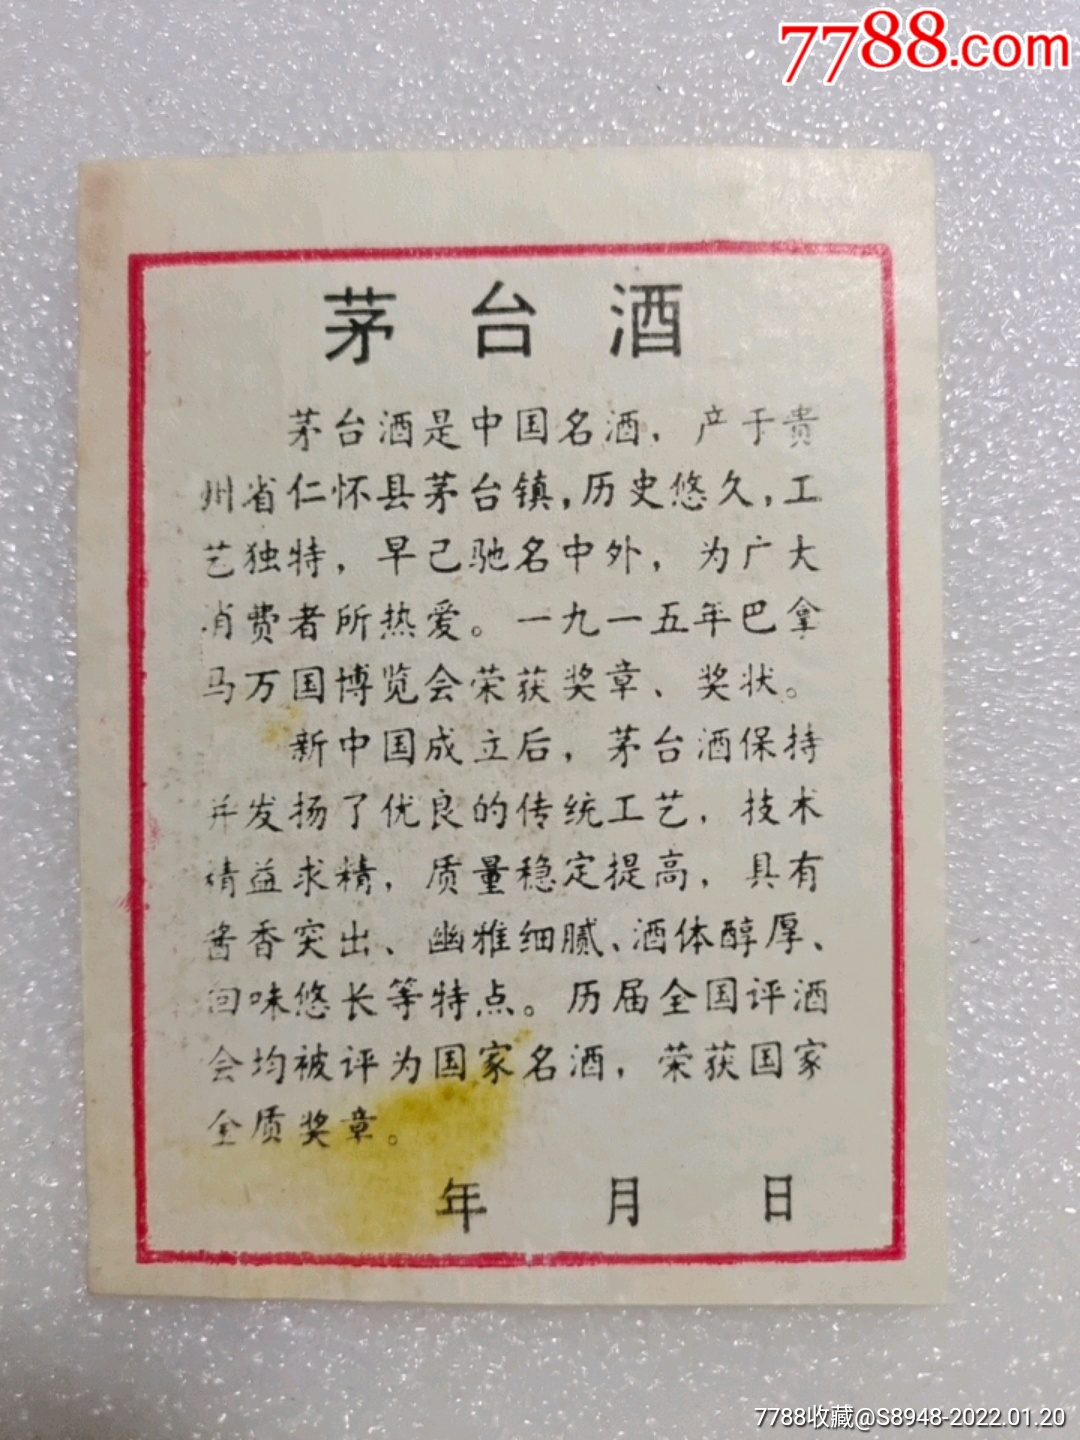 7788.com
茅台酒
茅台酒是中国名酒，产于贵
州省仁怀县茅台镇，历史悠久，工
艺独特，早已驰名中外，为广大
消费者所热爱。一九一五年巴拿
马万国博览会荣获奖章、奖状。
新中国成立后，茅台酒保持
并发扬了优良的传统工艺，技术
精益求精，质量稳定提高，具有
酱香突出、幽雅细腻、酒体醇厚、
回味悠长等特点。历届全国评酒
会均被评为国家名酒，荣获国家
金质奖章。
年 月 日
7788收藏@S8948-2022.01.20